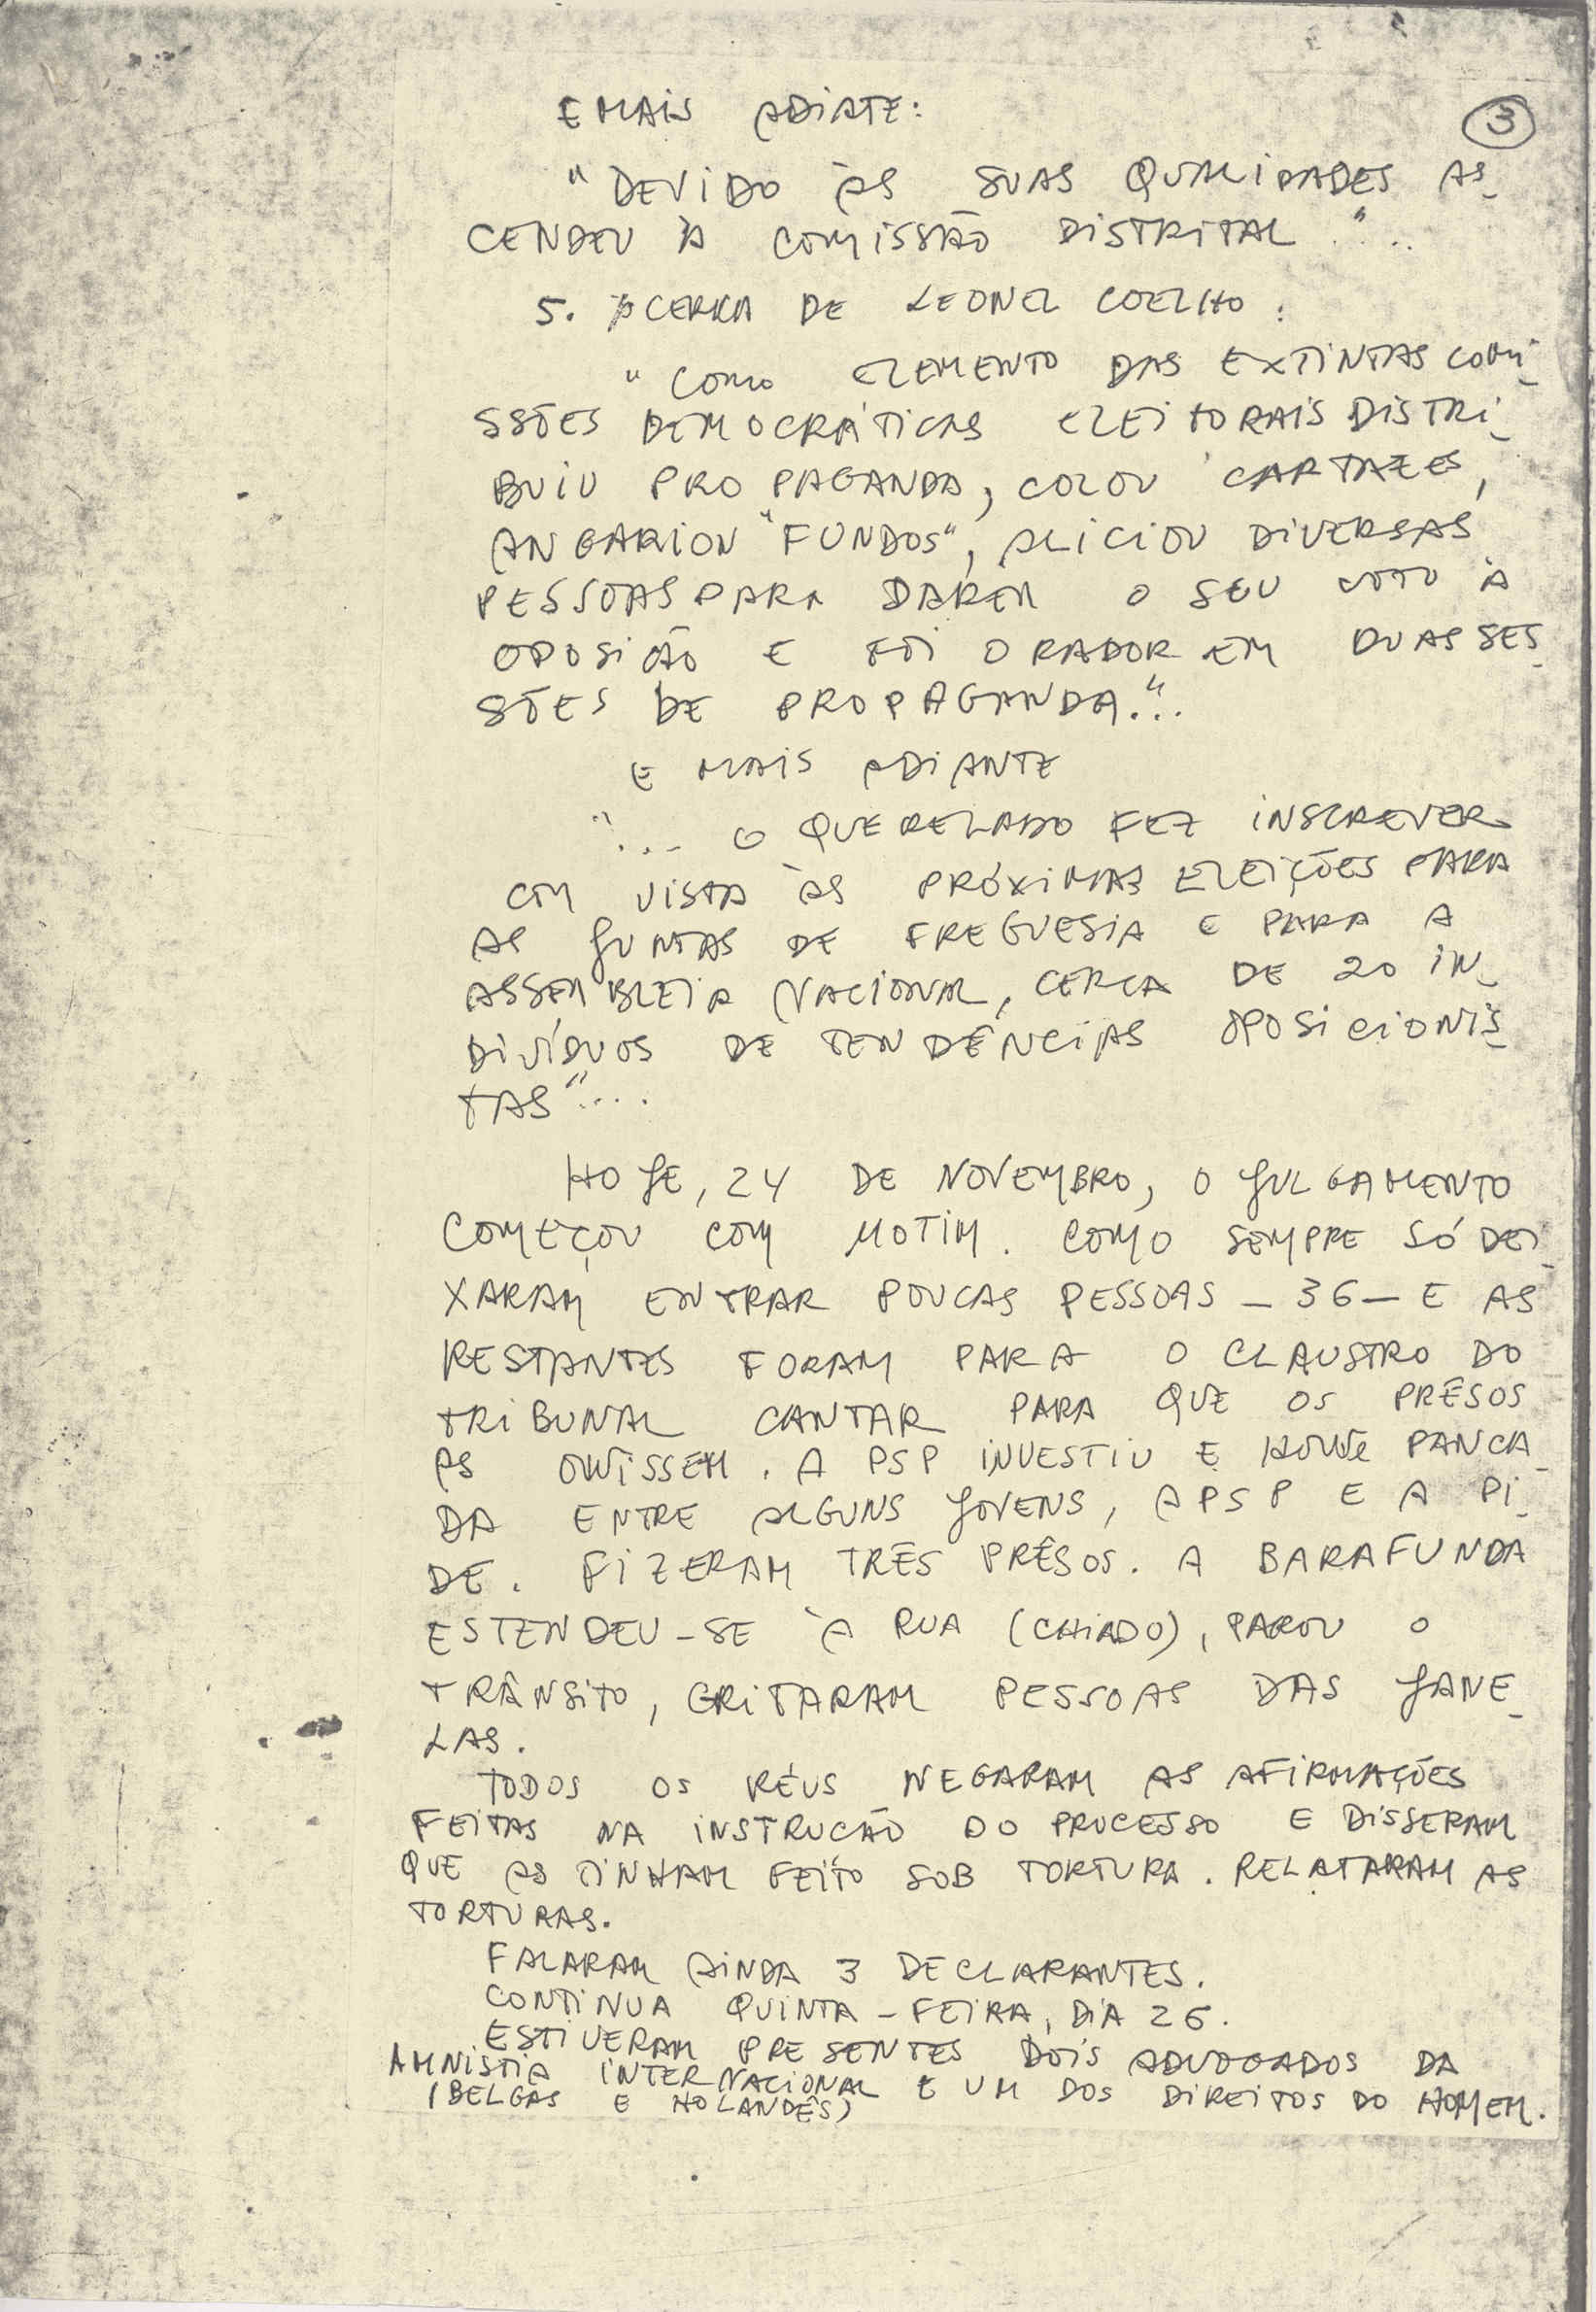 E MAIS ADIATE:
3
"DEVIDO ÀS SUAS QUALIDADES AS-
CENDEU À COMISSÃO DISTRITAL"...
5. ACERCA DE LEONEL COELHO:
"COMO ELEMENTO DAS EXTINTAS COMI-
SSÕES DEMOCRÁTICAS ELEITORAIS DISTRI-
BUIU PROPAGANDA, COLOU CARTAZES,
ANGARIOU "FUNDOS", ALICIOU DIVERSAS
PESSOAS PARA DAREM O SEU VOTO À
OPOSIÇÃO E FOI ORADOR EM DUAS SES-
SÕES DE PROPAGANDA."..
E MAIS ADIANTE
"... O QUERELADO FEZ INSCREVER
COM VISTA ÀS PRÓXIMAS ELEIÇÕES PARA
AS JUNTAS DE FREGUESIA E PARA A
ASSEMBLEIA NACIONAL, CERCA DE 20 IN-
DIVÍDUOS DE TENDÊNCIAS OPOSICIONIS-
TAS"....
HOJE, 24 DE NOVEMBRO, O JULGAMENTO
COMEÇOU COM MOTIM. COMO SEMPRE SÓ DEI-
XARAM ENTRAR POUCAS PESSOAS - 36 - E AS
RESTANTES FORAM PARA O CLAUSTRO DO
TRIBUNAL CANTAR PARA QUE OS PRÊSOS
AS OUVISSEM. A PSP INVESTIU E HOUVE PANCA-
DA ENTRE ALGUNS JOVENS, A PSP E A PI-
DE. FIZERAM TRÊS PRÊSOS. A BARAFUNDA
ESTENDEU-SE À RUA (CHIADO), PAROU O
TRÂNSITO, GRITARAM PESSOAS DAS JANE-
LAS.
TODOS OS RÉUS NEGARAM AS AFIRMAÇÕES
FEITAS NA INSTRUCÃO DO PROCESSO E DISSERAM
QUE AS TINHAM FEITO SOB TORTURA. RELATARAM AS
TORTURAS.
FALARAM AINDA 3 DECLARANTES.
CONTINUA QUINTA-FEIRA, DIA 26.
ESTIVERAM PRESENTES DOIS ADVOGADOS DA
AMNISTIA INTERNACIONAL E UM DOS DIREITOS DO HOMEM.
(BELGAS E HOLANDÊS)